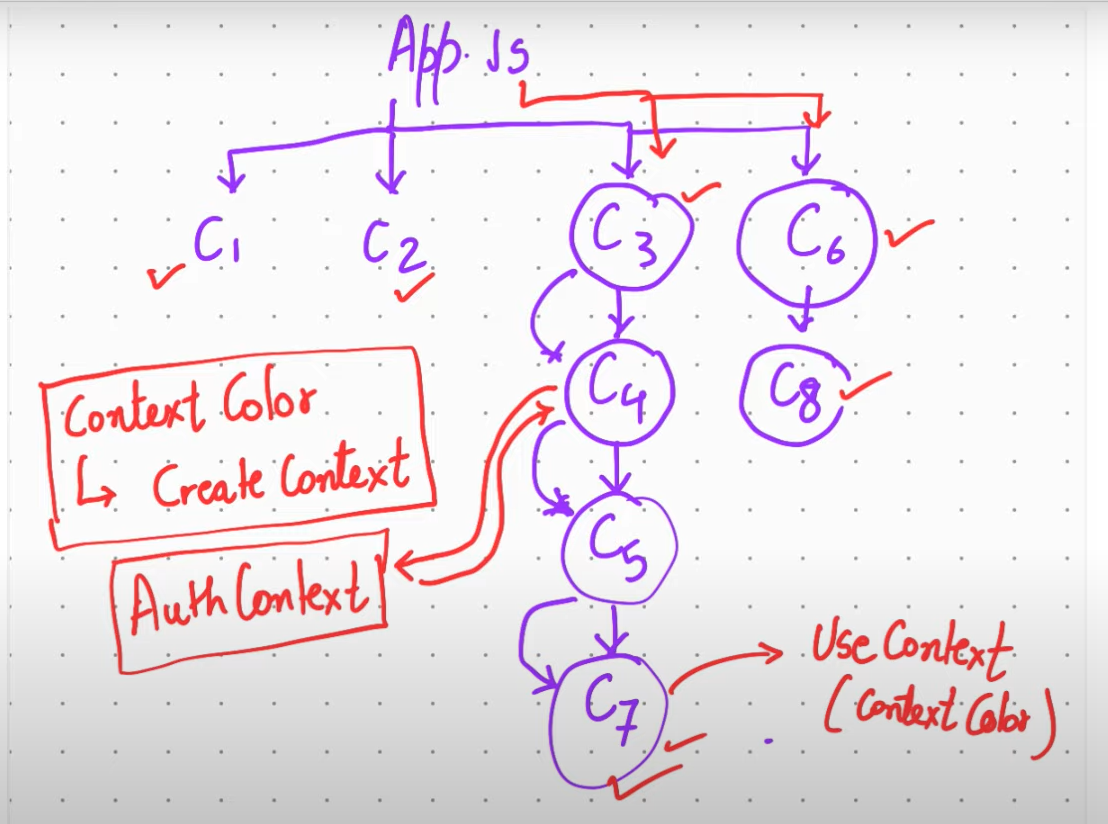 App.Js
C1
C2
C3
C6
C4
C8
Context Color
↳ Create Context
C5
Auth Context
C7
Use Context
(Context Color)